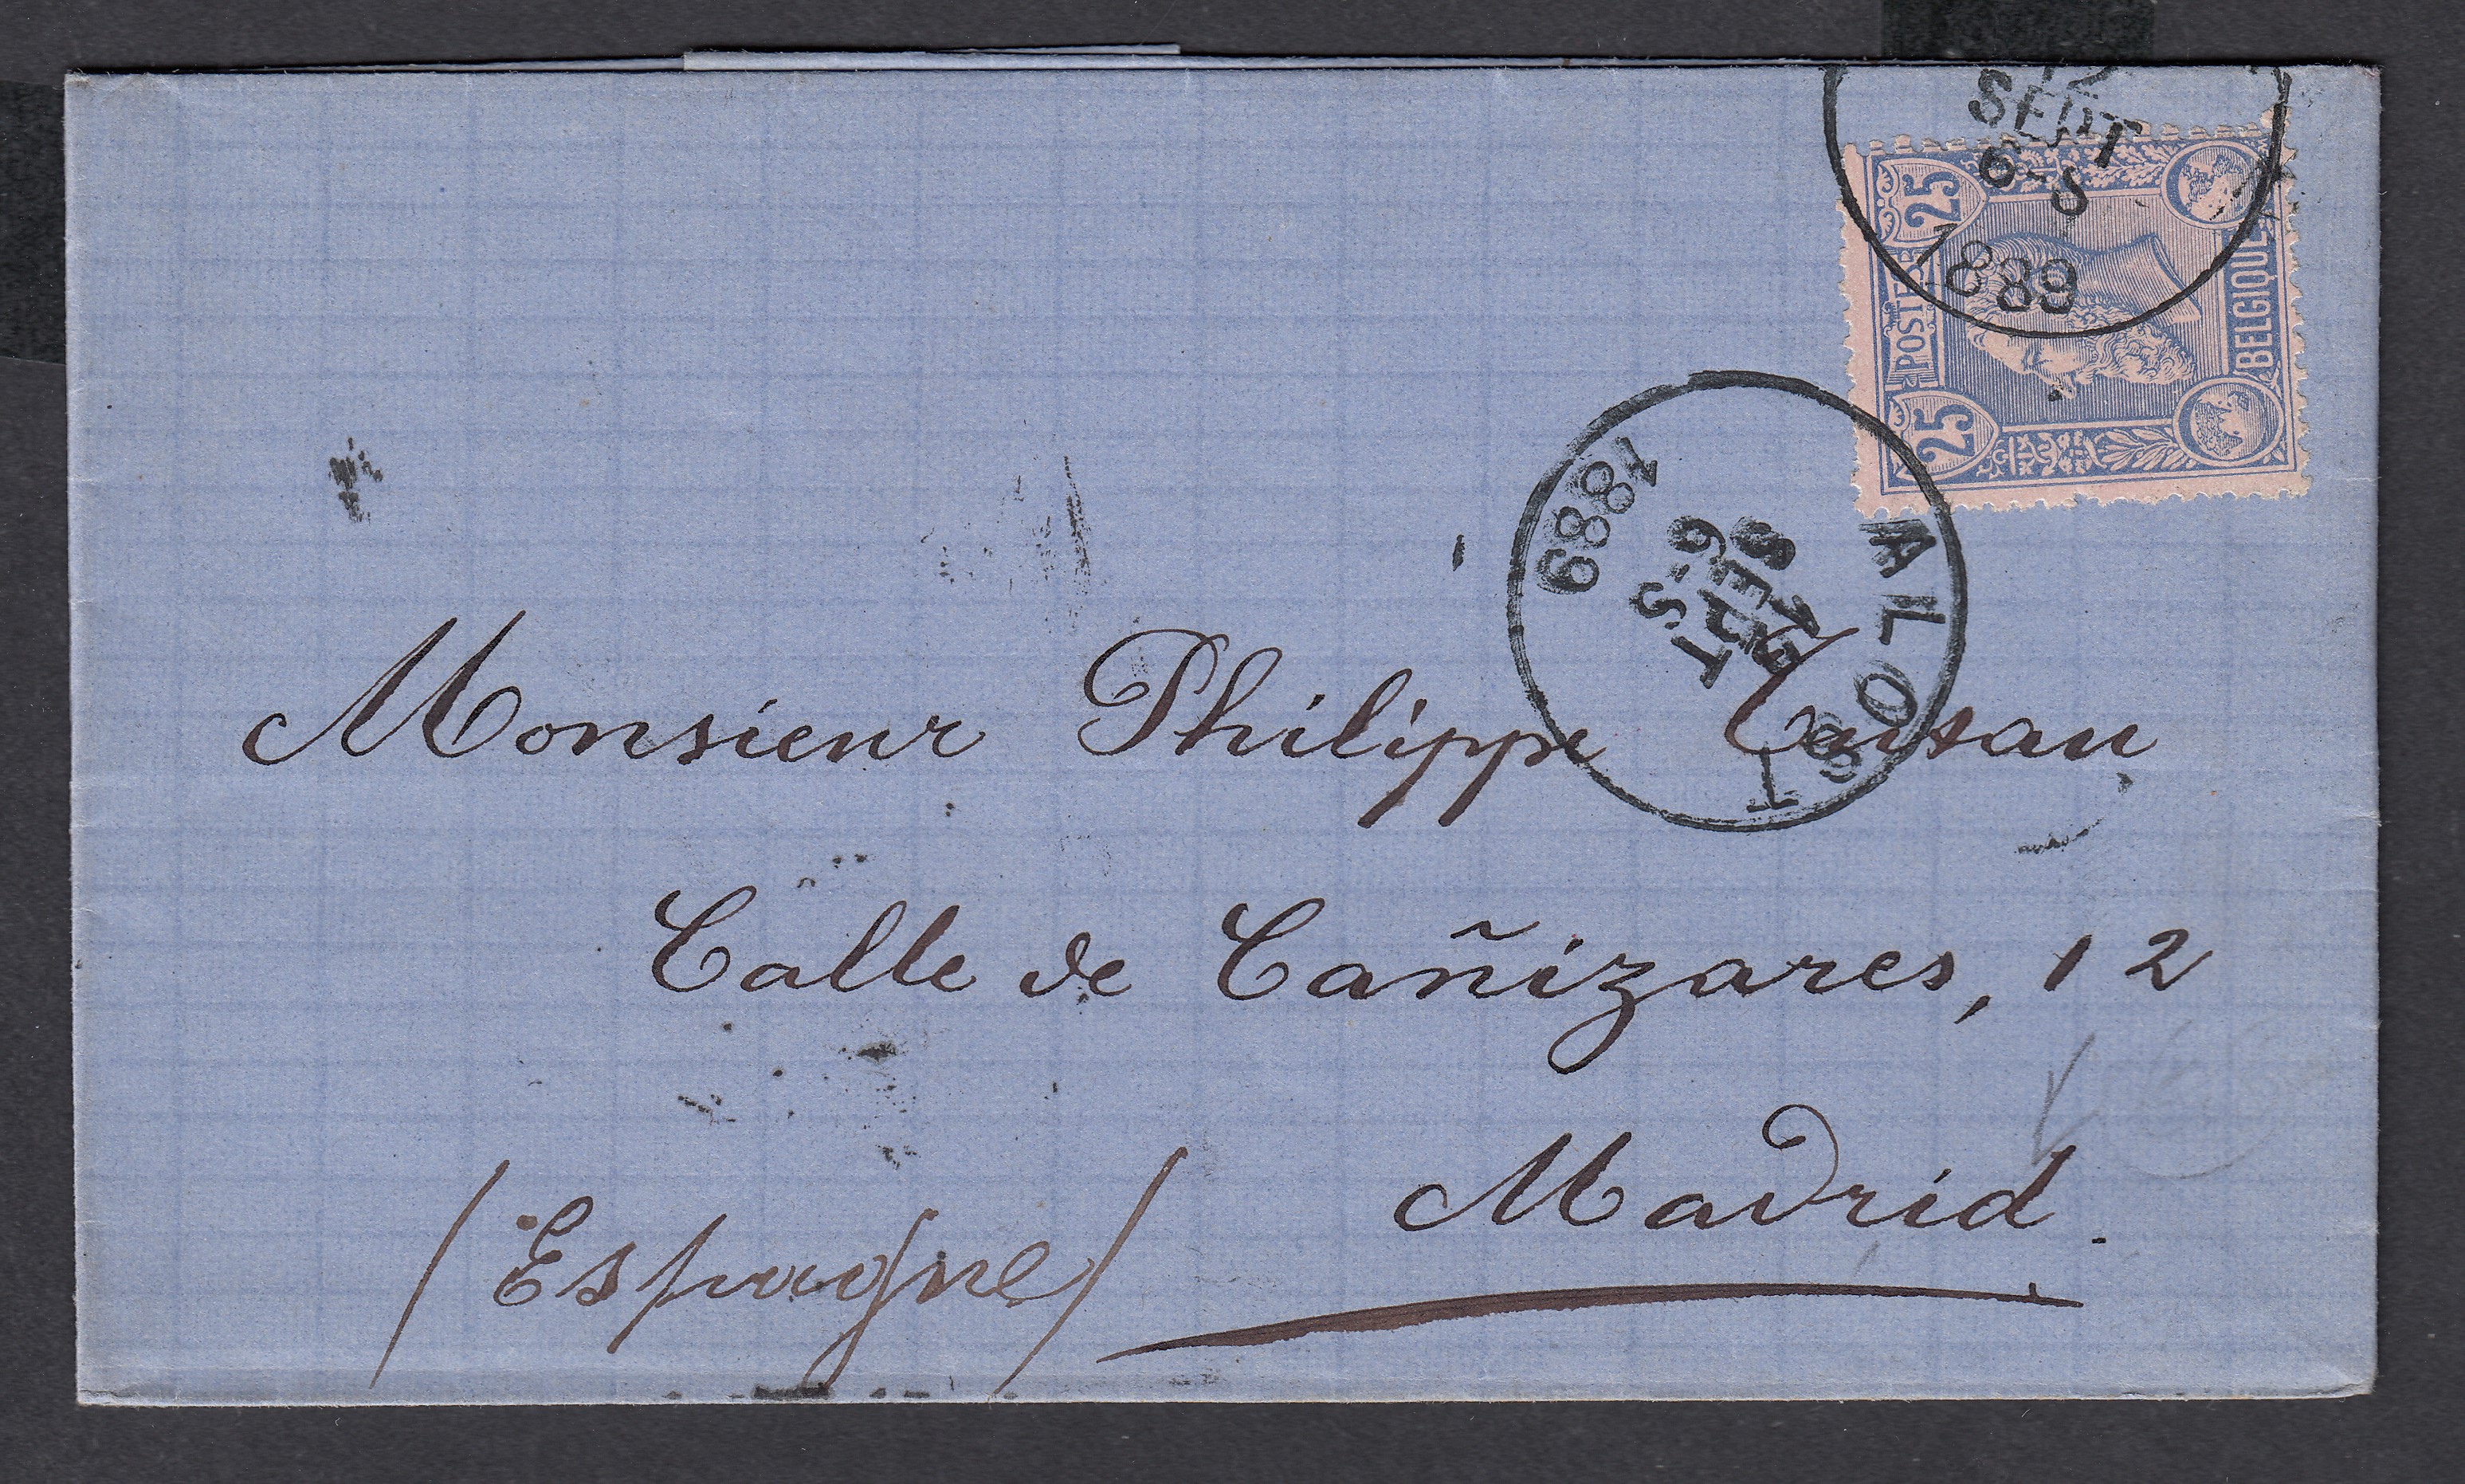 12
SEPT
6-S
1889
25
POSTES
25
BELGIQUE
ALOST
12
SEPT
6-S
1889
Monsieur Philippe
Calle de Cañizares, 12
Madrid.
(Espagne)